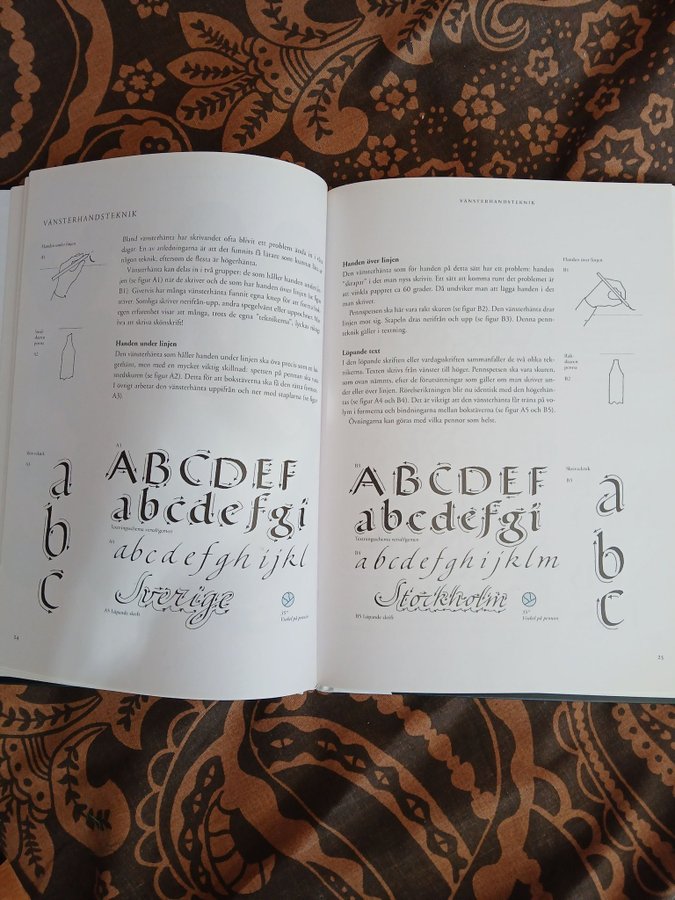 VÄNSTERHANDSTEKNIK
Handen under linjen
A1
Bland vänsterhänta har skrivandet ofta blivit ett problem ända in i våra
dagar. En av anledningarna är att det funnits få lärare som kunnat lära ut
någon teknik, eftersom de flesta är högerhänta.
Vänsterhänta kan delas in i två grupper: de som håller handen under linjen
(se figur A1) när de skriver och de som har handen över linjen (se figur
B1). Givetvis har många vänsterhänta funnit egna knep för att
skriver. Somliga skriver nerifrån-upp, andra spegelvänt eller uppochner. Min
egen erfarenhet visar att många, trots de egna "teknikerna", lyckats
öva att skriva skönskrift!
skuren
penna
A2
Handen under linjen
Den vänsterhänta som håller handen under linjen ska öva precis som
hänt, men med en mycket viktig skillnad: spetsen på pennan ska vara
medskuren (se figur A2). Detta för att bokstäverna ska få den rätta
I övrigt arbetar den vänsterhänta uppifrån och ner med staplarna (se figur
A3).
A3
a
b
c
A3
ABCDEF
abcdefgi
Textningsschema versal/gemen
A4
abcdefghijkl
Sverige
A5 Löpande skrift
35°
Vinkel på pennan
24
VÄNSTERHANDSTEKNIK
Handen över linjen
Den vänsterhänta som för handen på detta sätt har ett problem: handen
"skrapar" i det man nyss skrivit. Ett sätt att komma runt det problemet är
att vinkla pappret ca 60 grader. Då undviker man att lägga handen i det
man skriver.
Pennspetsen ska här vara rakt skuren (se figur B2). Den vänsterhänta drar
linjen mot sig. Stapeln dras nerifrån och upp (se figur B3). Denna penn-
teknik gäller i textning.
Handen över linjen
B1
Löpande text
I den löpande skriften eller vardagsskriften sammanfaller de två olika tek-
nikerna. Texten skrivs från vänster till höger. Pennspetsen ska vara skuren,
som ovan nämnts, efter de förutsättningar som gäller om man skriver un-
der eller över linjen. Rörelseriktningen blir nu identisk med den högerhän-
tas (se figur A4 och B4). Det är viktigt att den vänsterhänta får träna på vo-
lym i formerna och bindningarna mellan bokstäverna (se figur A5 och B5).
Övningarna kan göras med vilka pennor som helst.
Rak
skuren
penna
B2
B3
ABCDEF
abcdefgi
Textningsschema versal/gemen
B4
abcdefghijklm
Stockholm
B5 Löpande skrift
35°
Vinkel på pennan
Skrivteknik
B3
a
b
c
25